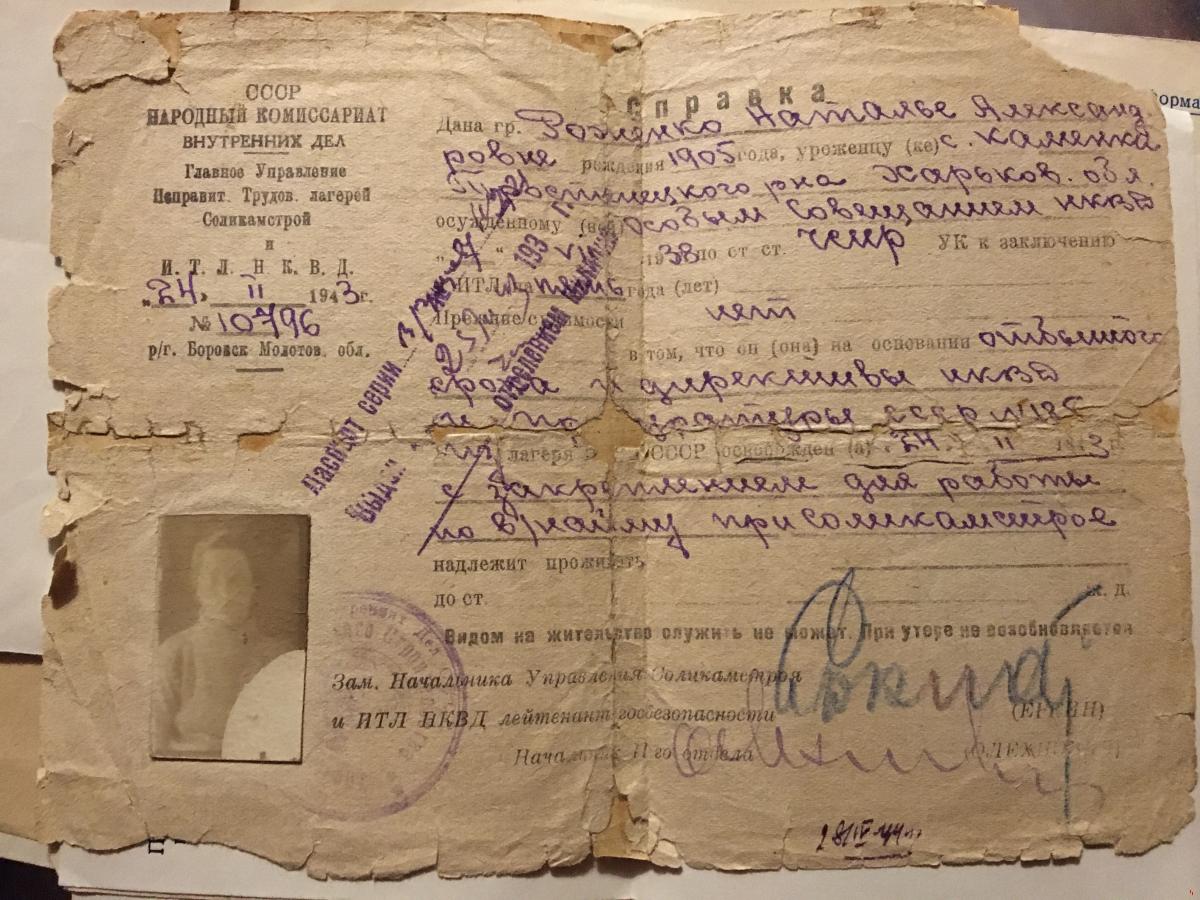 СССР
НАРОДНЫЙ КОМИССАРИАТ
ВНУТРЕННИХ ДЕЛ
Главное Управление
Исправит. Трудов. лагерей
Соликамстрой
и
И. Т. Л. Н. К. В. Д.
„24" II 1943г.
№ 10796
р/г. Боровск Молотов. обл.
Справка
Дана гр. Наталье Александ
ровне рождения 1905 года, уроженцу (ке) с. Каменка
рна Харьков. обл.
осужденному (ной) Особым Совещанием НКВД
1938 по ст ст. чсир УК к заключению
в ИТЛ на пять года (лет)
Прежние судимости нет
в том, что он (она) на основании отбытого
срока и директивы НКВД
и прокуратуры СССР №185
из лагеря СССР освобожден (а) „24" II 1943
с закреплением для работы
по в/найму при Соликамстрое
надлежит проживать
до ст. ж. д.
Видом на жительство служить не может. При утере не возобновляется
Зам. Начальника Управления Соликамстроя
и ИТЛ НКВД лейтенант госбезопасности
Начальник II го отдела
Паспорт серии
Выдан
193
отделением
28/IV-44г.
форма